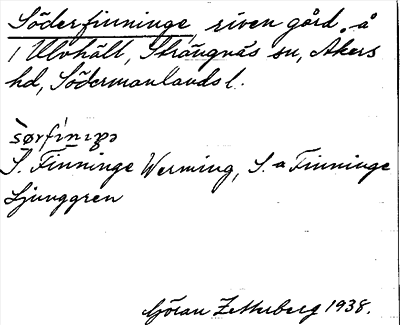 Söderfinninge, riven gård å
/ Ulvhäll, Strängnäs sn, Åkers
hd, Södermanlands l.
S. Finninge Werming, S. a Finninge
Ljunggren
Göran Zetterberg 1938.